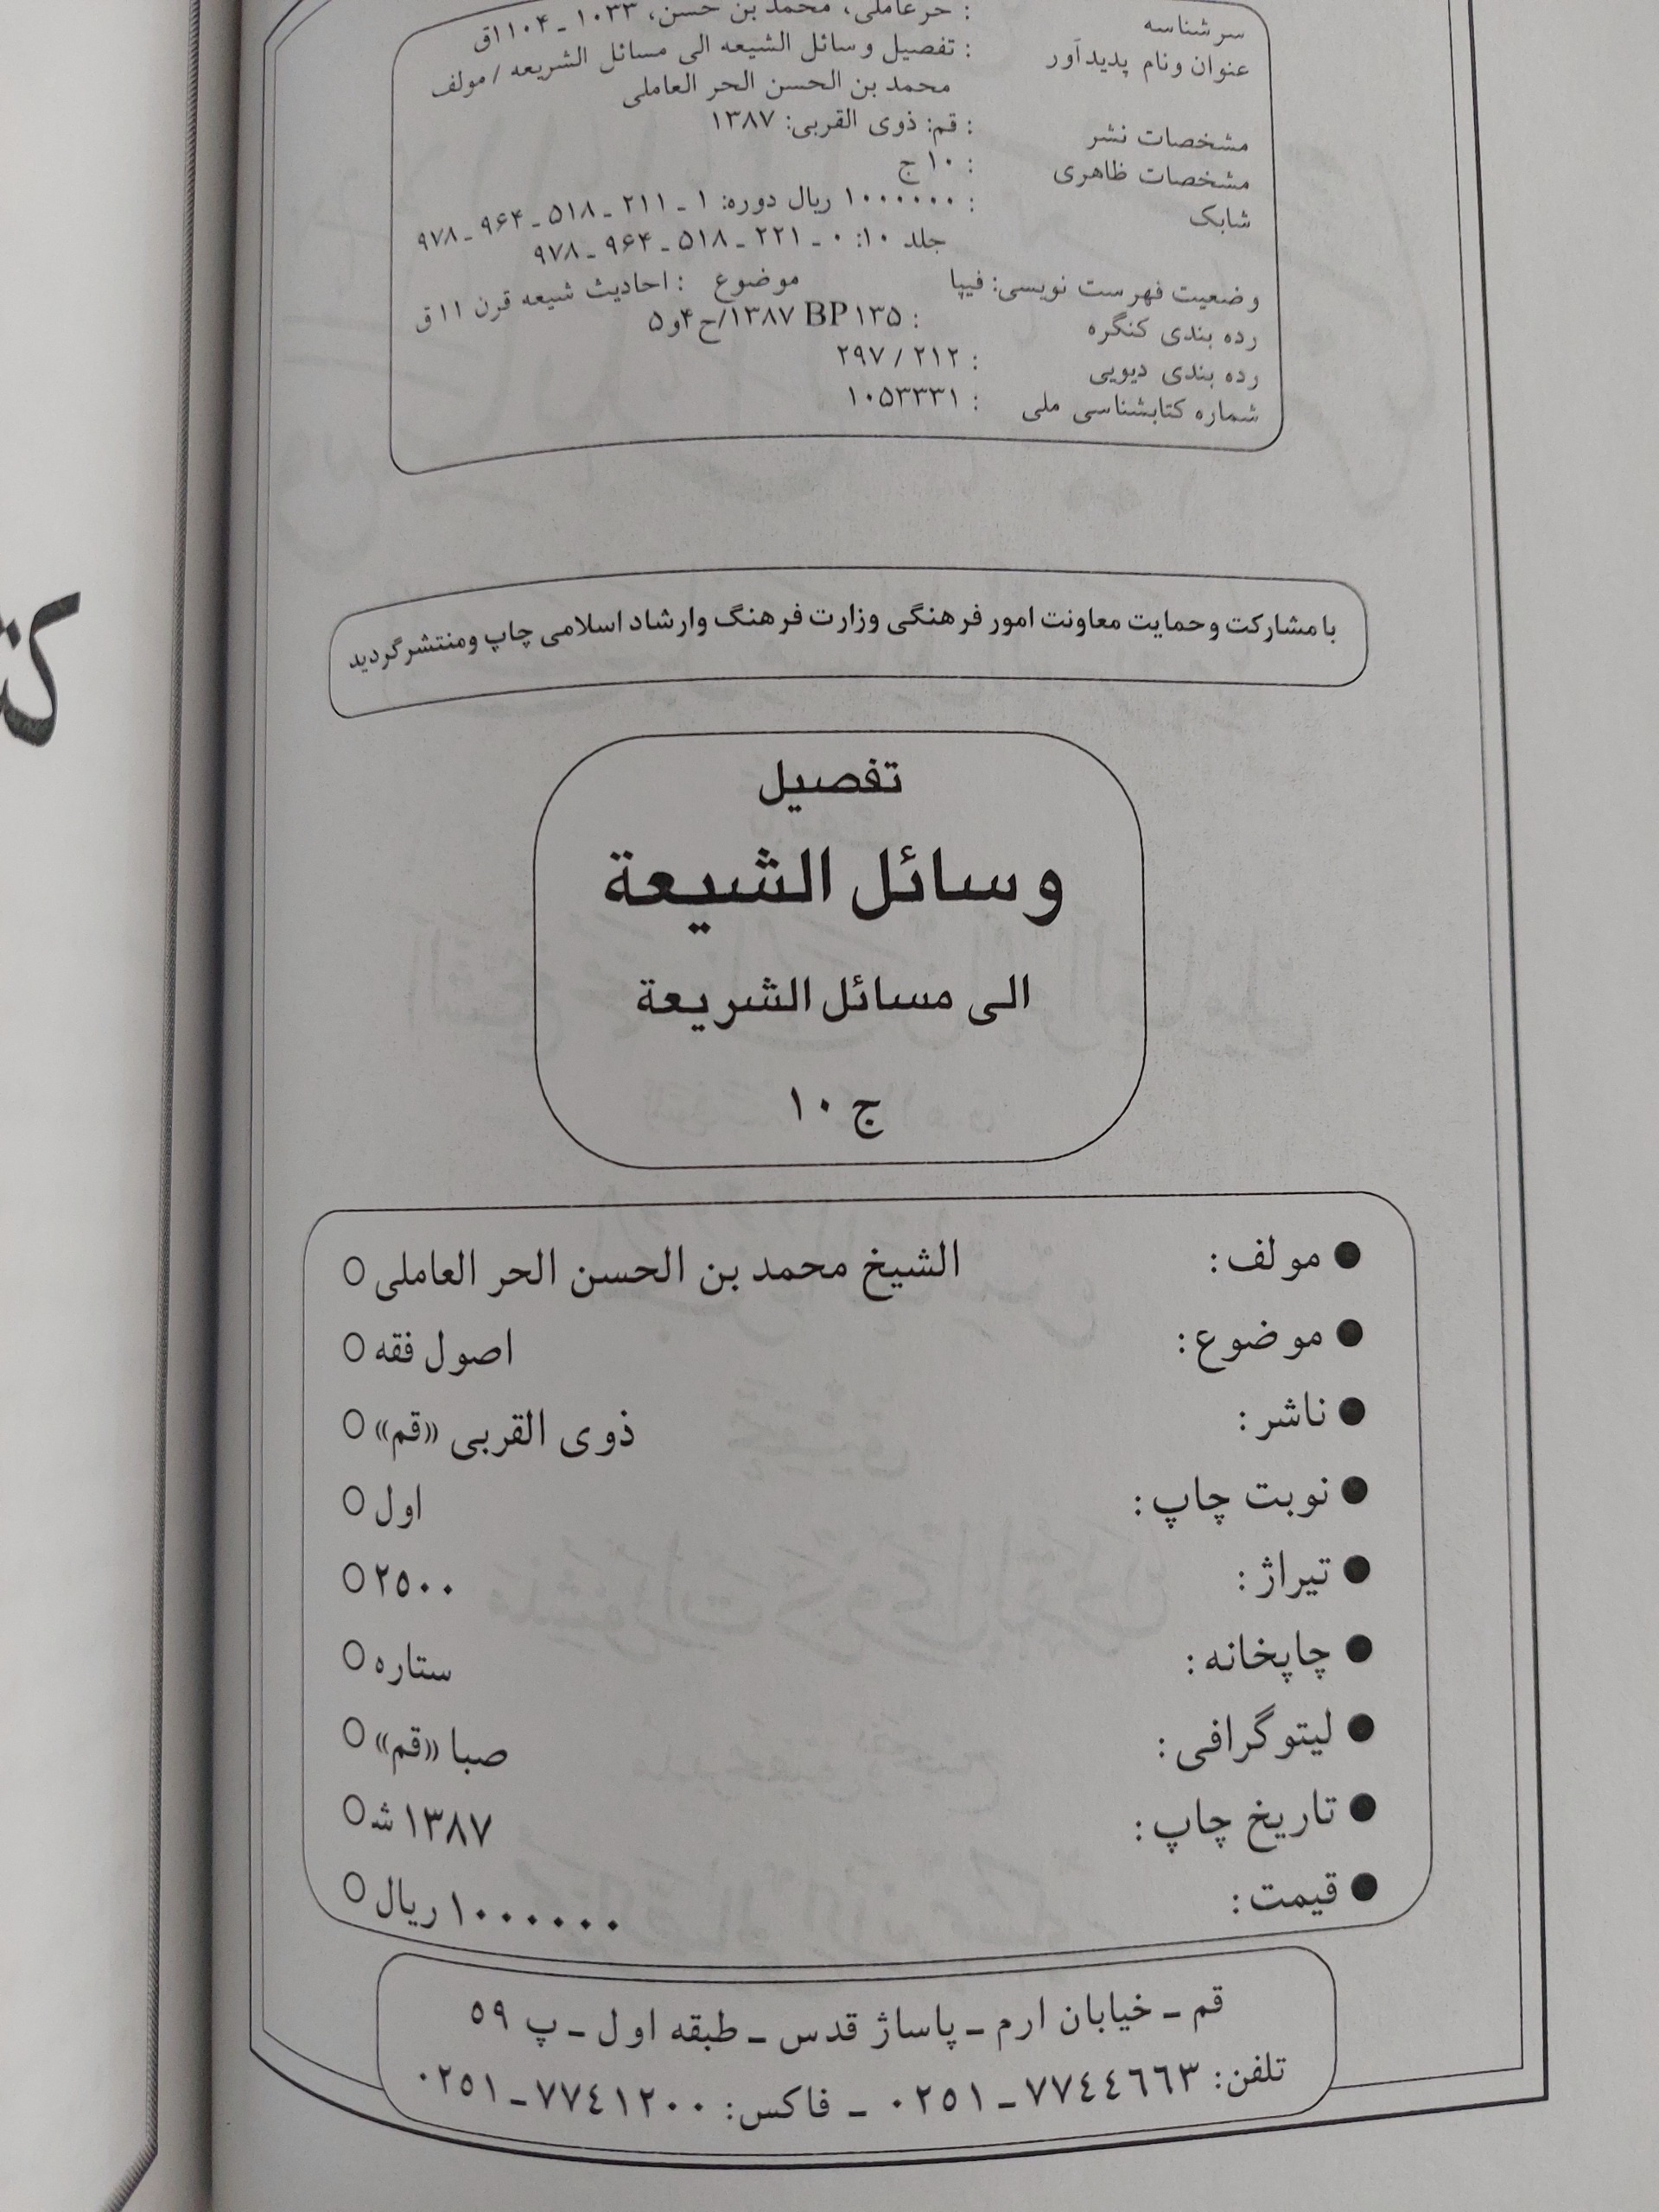 سرشناسه : حرعاملی، محمد بن حسن، ۱۰۳۳ ـ ۱۱۰۴ق
عنوان ونام پدیدآور : تفصیل وسائل الشیعه الی مسائل الشریعه / مولف
محمد بن الحسن الحر العاملی
مشخصات نشر : قم: ذوی القربی: ۱۳۸۷
مشخصات ظاهری : ۱۰ ج
شابک : ۱۰۰۰۰۰۰ ریال دوره: ۱ ـ ۲۱۱ ـ ۵۱۸ ـ ۹۶۴ ـ ۹۷۸
جلد ۱۰: ۰ ـ ۲۲۱ ـ ۵۱۸ ـ ۹۶۴ ـ ۹۷۸
وضعیت فهرست نویسی: فیپا موضوع : احادیث شیعه قرن ۱۱ق
رده بندی کنگره : ۱۳۸۷ BP ۱۳۵/ح۴و۵
رده بندی دیویی : ۲۹۷ / ۲۱۲
شماره کتابشناسی ملی : ۱۰۵۳۳۳۱
با مشارکت وحمایت معاونت امور فرهنگی وزارت فرهنگ وارشاد اسلامی چاپ ومنتشرگردید
تفصیل
وسائل الشیعة
الی مسائل الشریعة
ج ۱۰
● مولف: الشیخ محمد بن الحسن الحر العاملی ○
● موضوع: اصول فقه ○
● ناشر: ذوی القربی «قم» ○
● نوبت چاپ: اول ○
● تیراژ: ۲۵۰۰ ○
● چاپخانه: ستاره ○
● لیتوگرافی: صبا «قم» ○
● تاریخ چاپ: ۱۳۸۷ ش ○
● قیمت: ۱۰۰۰۰۰۰ ریال ○
قم ـ خیابان ارم ـ پاساژ قدس ـ طبقه اول ـ پ ۵۹
تلفن: ٧٧٤٤٦٦٣ ـ ٠٢٥١ ـ فاکس: ٧٧٤١٢٠٠ ـ ٠٢٥١